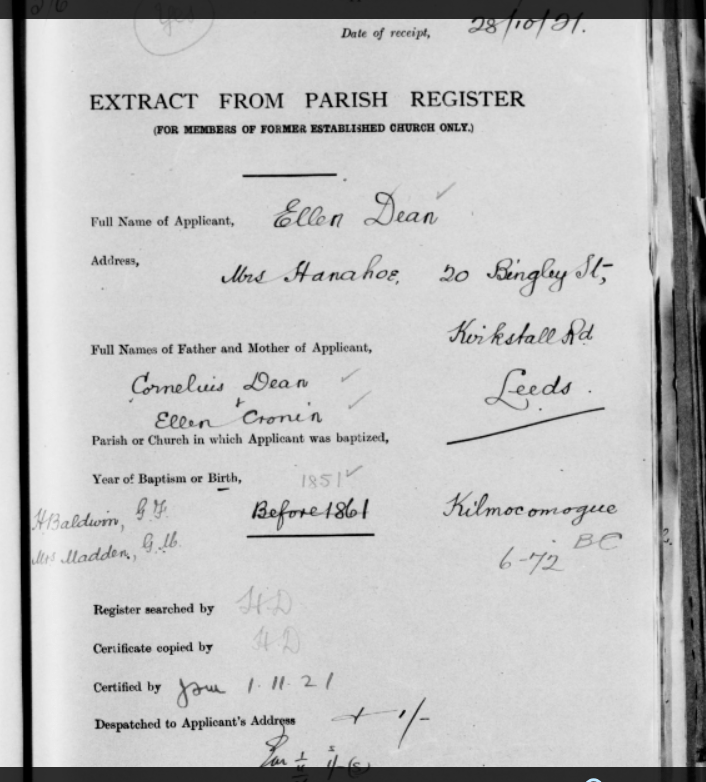 2/6
Yes
Date of receipt, 28/10/21.
EXTRACT FROM PARISH REGISTER
(FOR MEMBERS OF FORMER ESTABLISHED CHURCH ONLY.)
Full Name of Applicant, Ellen Dean
Address, Mrs Hanahoe, 20 Bingley St,
Kirkstall Rd
Leeds.
Full Names of Father and Mother of Applicant,
Cornelius Dean
Ellen Cronin
Parish or Church in which Applicant was baptized,
Year of Baptism or Birth, 1851
Before 1861 Kilmocomogue
H Baldwin, G.F.
Mrs Madden, G.M.
6-72 BC
Register searched by HD
Certificate copied by HD
Certified by 1.11.21
Despatched to Applicant's Address + 1/-